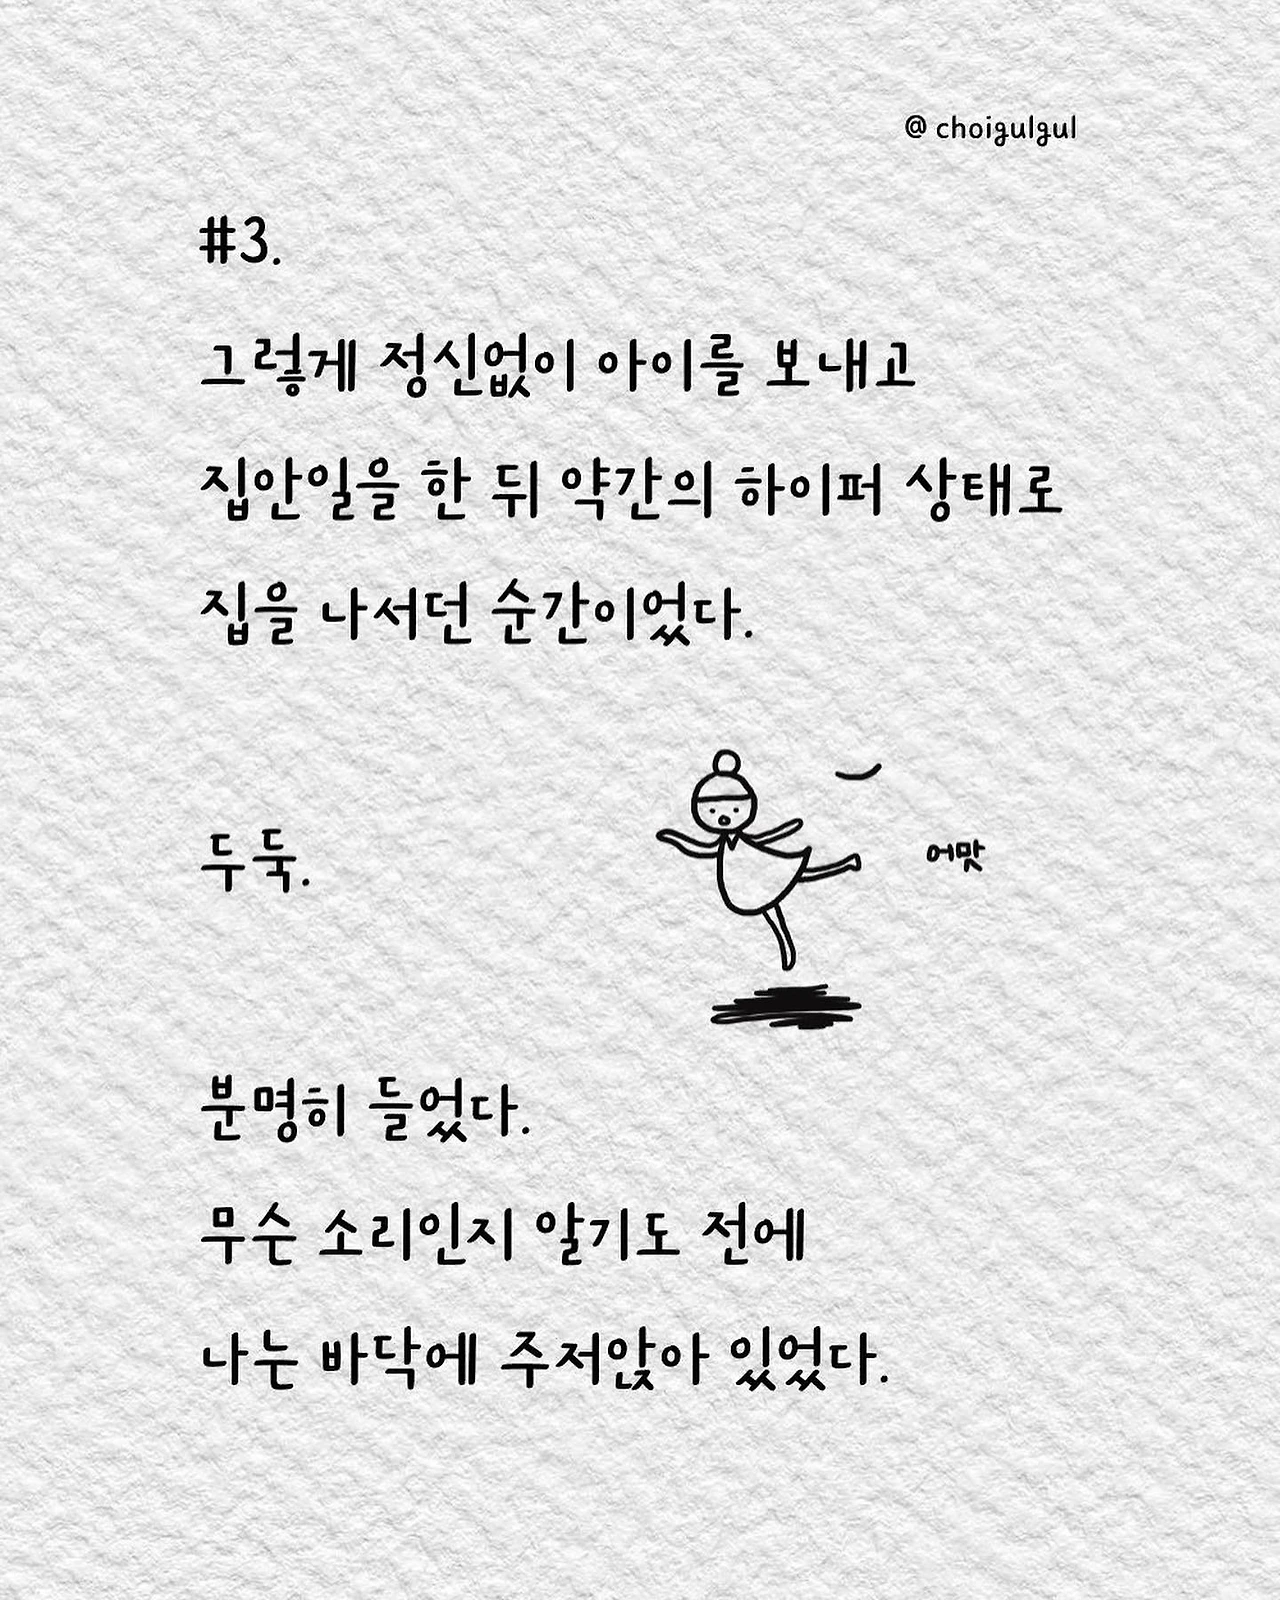 @ choigulgul
#3.
그렇게 정신없이 아이를 보내고
집안일을 한 뒤 약간의 하이퍼 상태로
집을 나서던 순간이었다.
두둑.
어맛
분명히 들었다.
무슨 소리인지 알기도 전에
나는 바닥에 주저앉아 있었다.